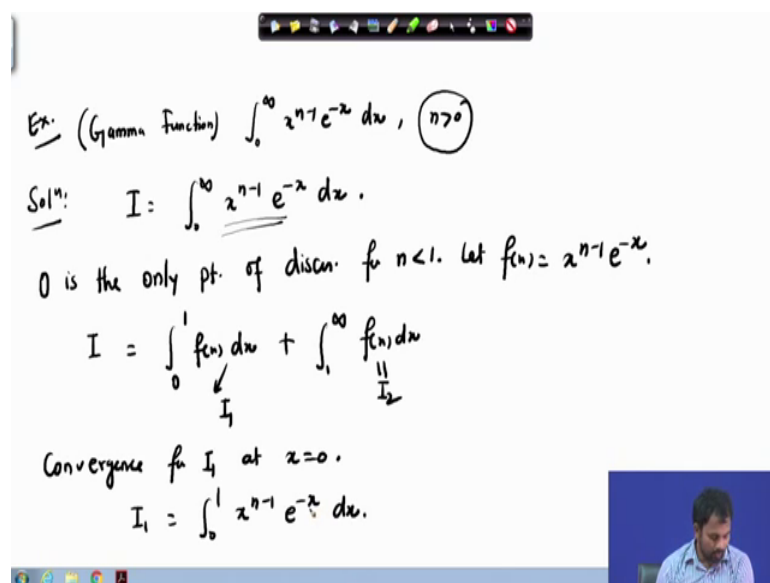 Ex. (Gamma Function) ∫₀^∞ x^{n-1} e^{-x} dx, n>0
Solⁿ: I = ∫₀^∞ x^{n-1} e^{-x} dx.
0 is the only pt. of discn. for n<1. Let f(x) = x^{n-1} e^{-x}.
I = ∫₀^1 f(x) dx + ∫₁^∞ f(x) dx
I₁ || I₂
Convergence for I₁ at x=0.
I₁ = ∫₀^1 x^{n-1} e^{-x} dx.